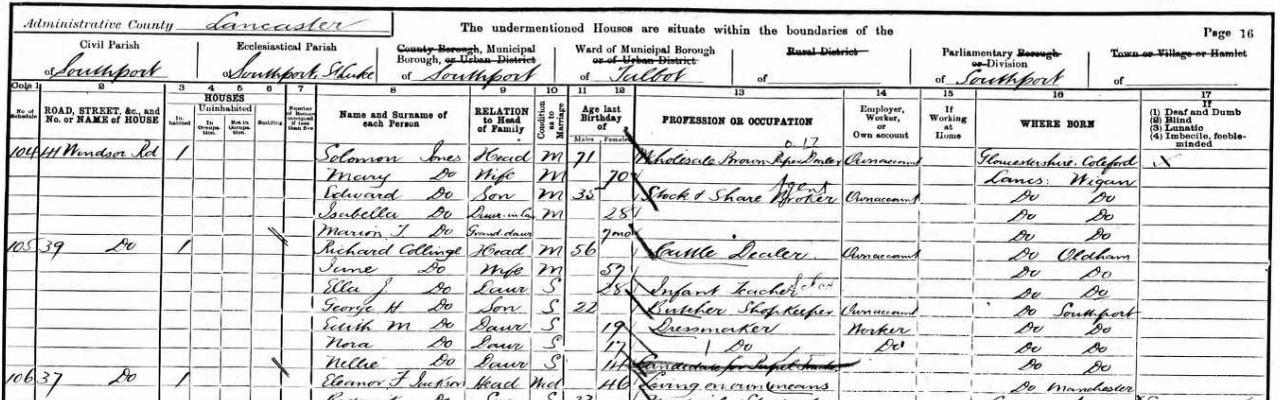 Administrative County Lancaster The undermentioned Houses are situate within the boundaries of the Page 16
Civil Parish Ecclesiastical Parish County Borough, Municipal Borough, or Urban District Ward of Municipal Borough or of Urban District Rural District Parliamentary Borough or Division Town or Village or Hamlet
of Southport of Southport, St Luke of Southport of Talbot of of Southport of
Cols 1 2 3 4 5 6 7 8 9 10 11 12 13 14 15 16 17
No. of Schedule ROAD, STREET, &c., and No. or NAME of HOUSE HOUSES Inhabited Uninhabited In Occupation Not in Occupation Building Number of Rooms occupied if less than five Name and Surname of each Person RELATION to Head of Family Condition as to Marriage Age last Birthday of Males Females PROFESSION OR OCCUPATION Employer, Worker, or Own account If Working at Home WHERE BORN If (1) Deaf and Dumb (2) Blind (3) Lunatic (4) Imbecile, feeble-minded
104 41 Windsor Rd 1 Solomon Jones Head M 71 Wholesale Brown Paper Dealer Own account Gloucestershire. Coleford X
Mary Do Wife M 70 Lancs: Wigan
Edward Do Son M 35 Stock & Share Broker Agent Own account Do Do
Isabella Do Daur-in-law M 28 Do Do
Marion Do Grand-daur 7 mo Do Do
105 39 Do 1 Richard Collinge Head M 56 Cattle Dealer Own account Do Oldham
June Do Wife M 57 Do Do
Ella J Do Daur S 28 Infant Teacher Do Do
George H Do Son S 22 Butcher Shopkeeper Own account Do Southport
Edith M Do Daur S 19 Dressmaker Worker Do Do
Nora Do Daur S 17 Do Do Do Do
Nellie Do Daur S 14 Candidate for Pupil Teacher Do Do
106 37 Do 1 Eleanor F Jackson Head Wid 46 Living on own means Do Manchester